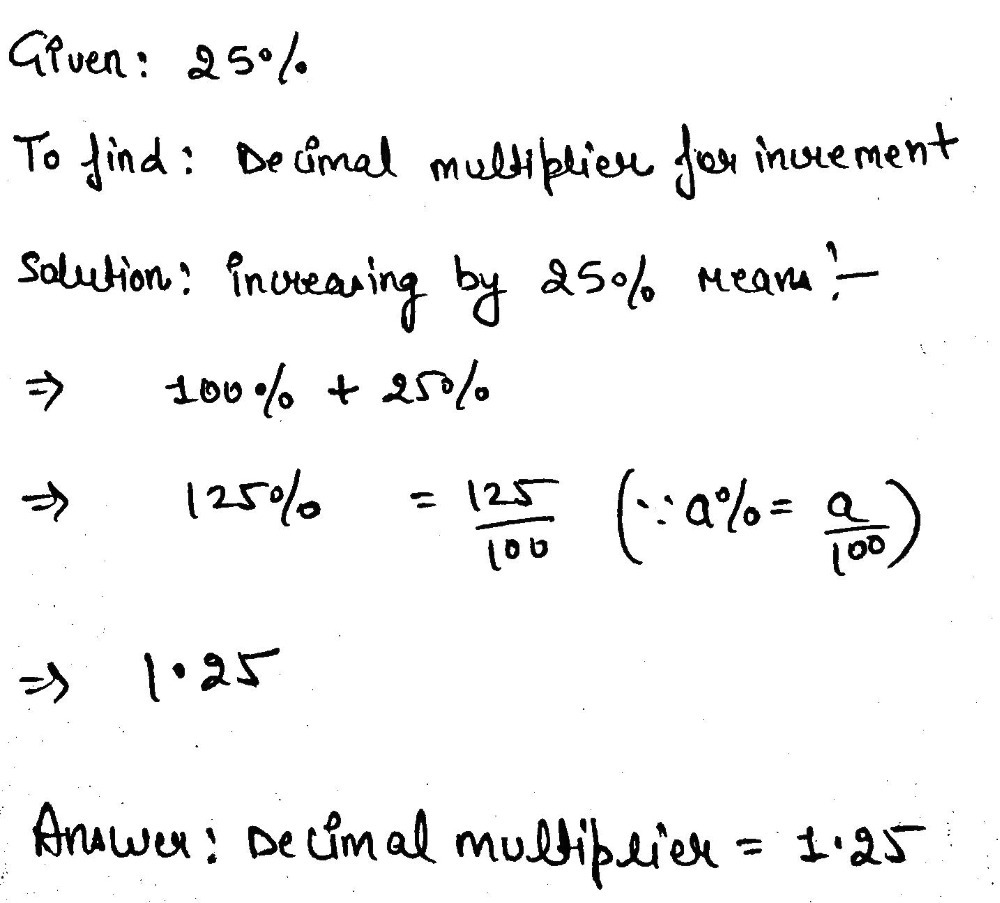 Given: 25%
To find: Decimal multiplier for increment
Solution: increasing by 25% means :-
⇒ 100% + 25%
⇒ 125% = 125/100 (∵ a% = a/100)
⇒ 1.25
Answer: Decimal multiplier = 1.25